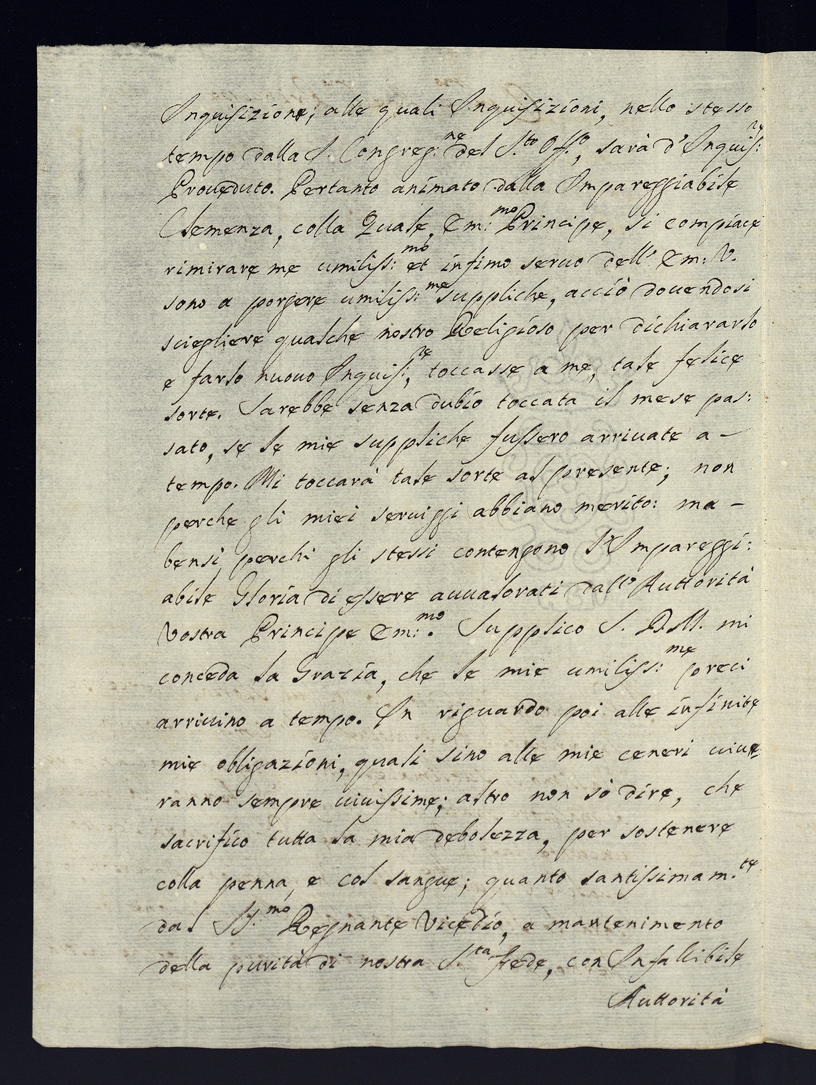 Inquisizione; alle quali Inquisizioni, nello stesso
tempo dalla S. Congreg:ne del S.to Off.o, sarà d'Inquis:re
Proueduto. Pertanto animato dalla Impareggiabile
Clemenza, colla Quale, Em:mo Principe, si compiace
rimirare me umiliss:mo et infimo seruo dell' Em: V.
sono a porgere umiliss:me suppliche, acciò douendosi
sciegliere qualche nostro Religioso per dichiararlo
e farlo nuouo Inquis:re, toccasse a me, tale felice
sorte. Sarebbe senza dubio toccata il mese pas:
sato, se le mie suppliche fussero arriuate a-
tempo. Mi toccarà tale sorte al presente; non
perche gli miei seruiggi abbiano merito: ma-
bensi perchi gli stessi contengono l'Impareggi:
abile Gloria di essere auualorati dall'Auttorità
Vostra Principe Em:mo. Supplico S. D. M. mi
conceda la Grazia, che le mie umiliss:me preci
arriuino a tempo. In riguardo poi alle infinite
mie obligazioni, quali sino alle mie ceneri uiue
ranno sempre uiuissime; altro non sò dire, che
sacrifico tutta la mia debolezza, per sostenere
colla penna, e col sangue; quanto santissimam.te
dal SS.mo Regnante Vicedio, a mantenimento
della purità di nostra S.ta Fede, con Infallibile
Auttorità